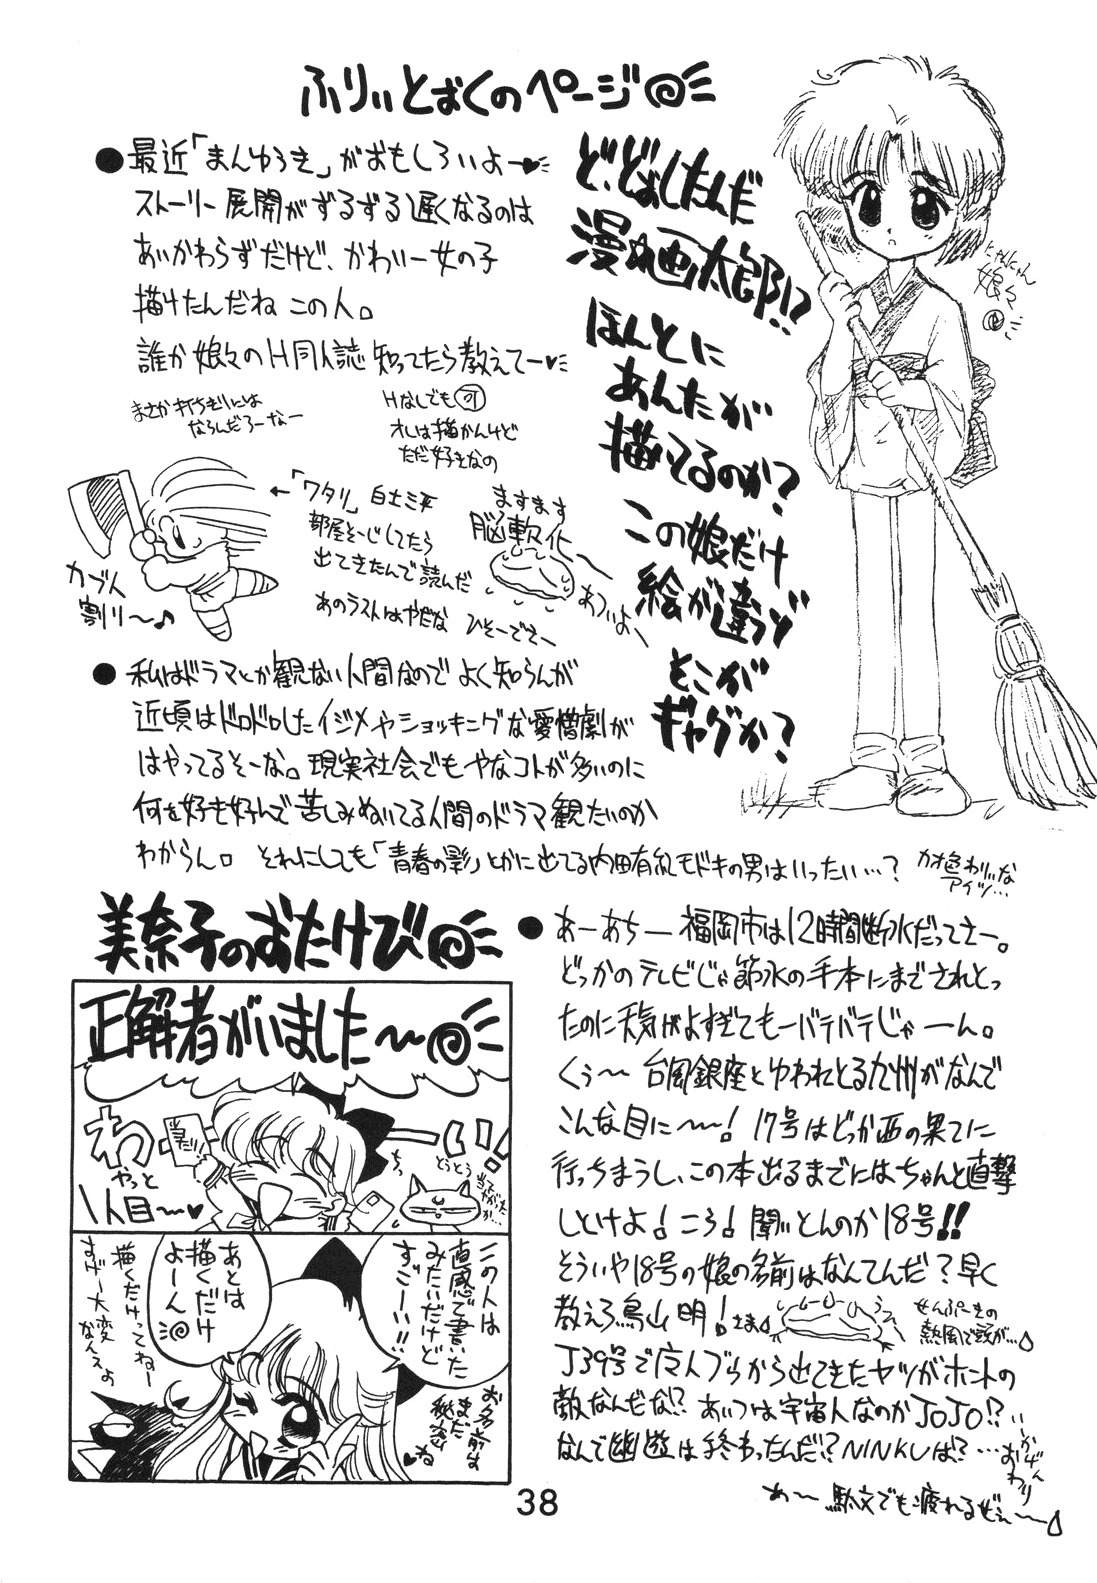 ふりぃとおくのページ
●最近「まんゆうき」がおもしろいよー♥
ストーリー展開がずるずる遅くなるのは
あいかわらずだけど、かわいー女の子
描けたんだね この人。
誰か娘々のH同人誌 知ってたら教えてー♥
まさか打ちぎりには
なるんだろーなー
Hなしでも可
オレは描かんけど
ただ好きなの
←「ワタリ」白土三平
部屋そーじしてたら
出てきたんで読んだ
あのラストはやだな ひそーでさー
ますます
脳軟化
あついよ
カブト
割り〜♪
ど、どおしたんだ
漫☆画太郎!?
ほんとに
あんたが
描いてるのか?
この娘だけ
絵が違うゾ
そこが
ギャグか?
にゃんにゃん
娘々
●私はドラマとか観ない人間なので よく知らんが
近頃はドロドロしたイジメやショッキングな愛憎劇が
はやってるそーな。現実社会でもやなコトが多いのに
何を好き好んで苦しみぬいてる人間のドラマ観たいのか
わからん。それにしても「青春の影」とかに出てる内田有紀モドキの男はいったい…?
カオ色わりぃな
アイツ…
美奈子のおたけび
正解者がいました〜
わーい!
当たり!
やっと
1人目〜♥
とうとう
この人は
直感で書いた
みたいだけど
すごーい!!
あとは
描くだけ
よーん
描くだけってねー
すげー大変
なんスよ
お名前は
まだ
秘密
♥ね
●あーあちー 福岡市は12時間断水だってさー。
どっかのテレビじゃ節水の手本にまでされとっ
たのに天気がよすぎてもーバテバテじゃーん。
くぅ〜 台風銀座とゆわれとる九州がなんで
こんな目に〜〜! 17号はどっか西の果てに
行っちまうし、この本出るまでにはちゃんと直撃
しとけよ! こら! 聞いとんのか18号!!
そういや18号の娘の名前はなんてんだ?早く
教えろ鳥山明!さま
せんぷーきの
熱風で頭が…
J39号で广人ブうから出てきたヤツがホントの
敵なんだな!? あいつは宇宙人なのかJOJO!?
なんで幽遊は終わったんだ!? NINKUは?…
おわり
あ〜 駄文でも疲れるぜぇ〜〜
38